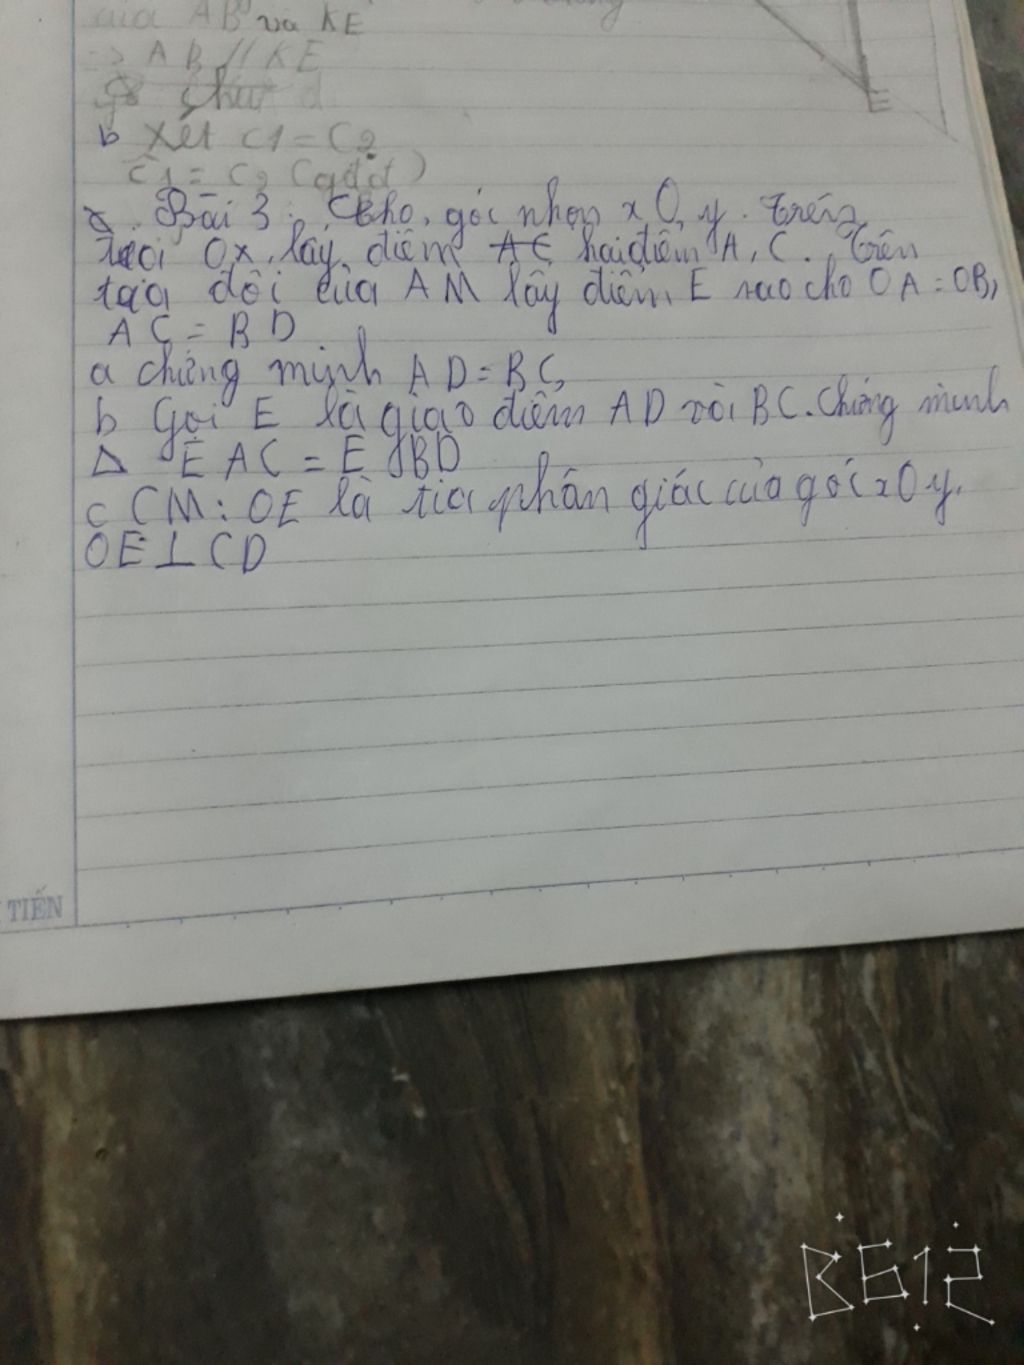 của AB và KE
=> AB // KE
b Xét C1 = C2
C1 = C2 (gđđ)
Bài 3: Cho góc nhọn xO,y. Trên
tai Ox, lấy điểm AC hai điểm A, C. Trên
taa đối của AM lấy điểm E sao cho OA = OB,
AC = BD
a chứng minh AD = BC,
b Gọi E là giao điểm AD với BC. Chứng minh
Δ EAC = E BD
c CM: OE là tia phân giác của góc xOy.
OE ⊥ CD
E
TIẾN
B612